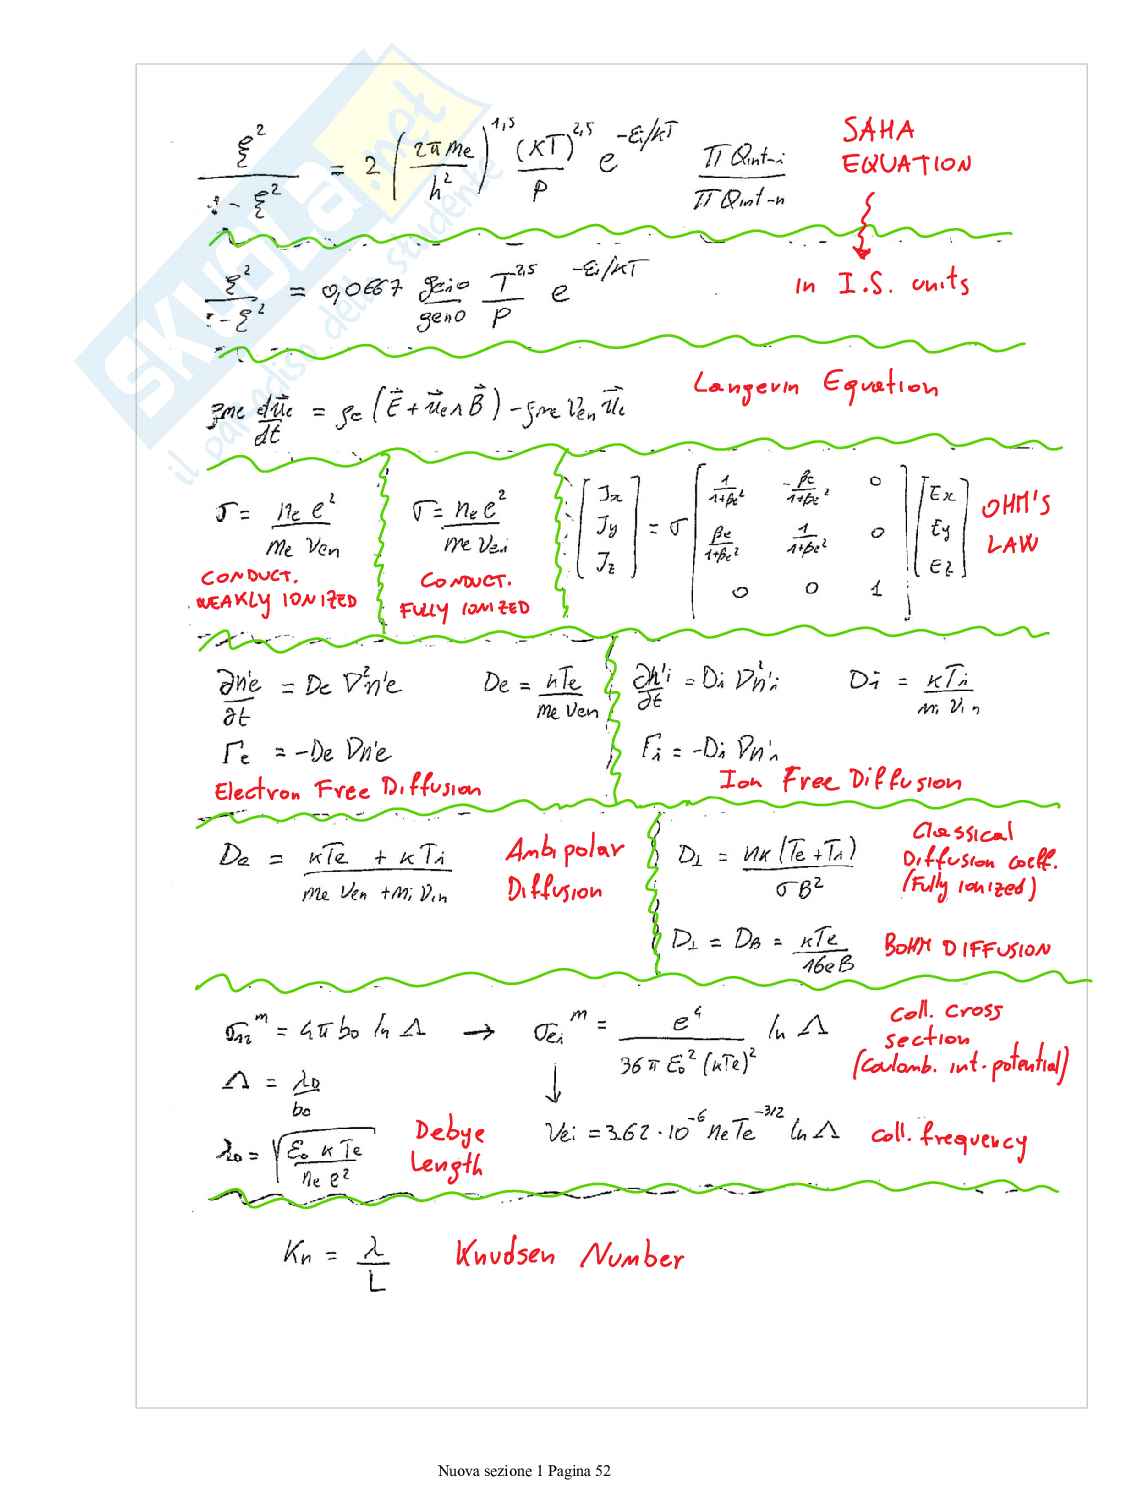 ξ² / (1 - ξ²) = 2 (2π me / h²)^1,5 (KT)^2,5 / P e^(-εi/KT) Π Qint-i / Π Qint-n
SAHA
EQUATION
ξ² / (1 - ξ²) = 0,0667 geio / geno T^2,5 / P e^(-εi/KT)
in I.S. units
Langevin Equation
ρme du⃗e/dt = ρe (E⃗ + u⃗e ∧ B⃗) - ρme νen u⃗e
σ = ne e² / (me νen)
CONDUCT.
WEAKLY IONIZED
σ = ne e² / (me νei)
CONDUCT.
FULLY IONIZED
[Jx Jy Jz] = σ [1/(1+βe²) -βe/(1+βe²) 0; βe/(1+βe²) 1/(1+βe²) 0; 0 0 1] [Ex Ey Ez]
OHM'S
LAW
∂n'e/∂t = De ∇²n'e De = KTe / (me νen)
Γe = -De ∇n'e
Electron Free Diffusion
∂n'i/∂t = Di ∇²n'i Di = KTi / (mi νin)
Γi = -Di ∇n'i
Ion Free Diffusion
Da = (KTe + KTi) / (me νen + mi νin)
Ambipolar
Diffusion
D⊥ = nK(Te+Ti) / (σB²)
Classical
Diffusion coeff.
(Fully ionized)
D⊥ = DB = KTe / (16eB)
BOHM DIFFUSION
σ12^m = 4π bo ln Λ → σei^m = e⁴ / (36π εo² (KTe)²) ln Λ
Coll. cross
section
(Coulomb. int. potential)
Λ = λD / bo
λD = √(εo K Te / (ne e²))
Debye
Length
νei = 3.62 · 10^-6 ne Te^-3/2 ln Λ
coll. frequency
Kn = λ / L
Knudsen Number
Nuova sezione 1 Pagina 52
SKUOLA.net
il paradiso dello studente